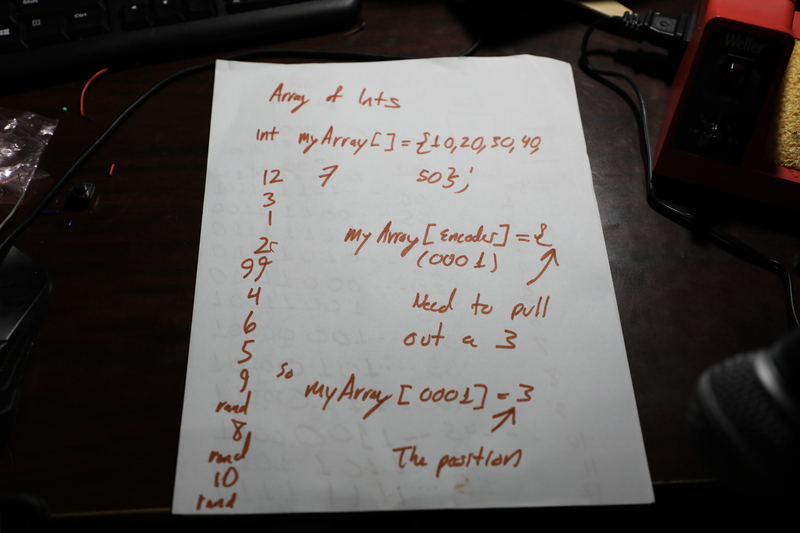 Weller
Ctrl
Array of Ints
int myArray[] = {10,20,30,40,
50};
12 7
3
1
25
99
4
6
5
9
rand
8
rand
10
rand
myArray[Encoder] = {
(0001)
Need to pull
out a 3
so myArray[0001] = 3
The position